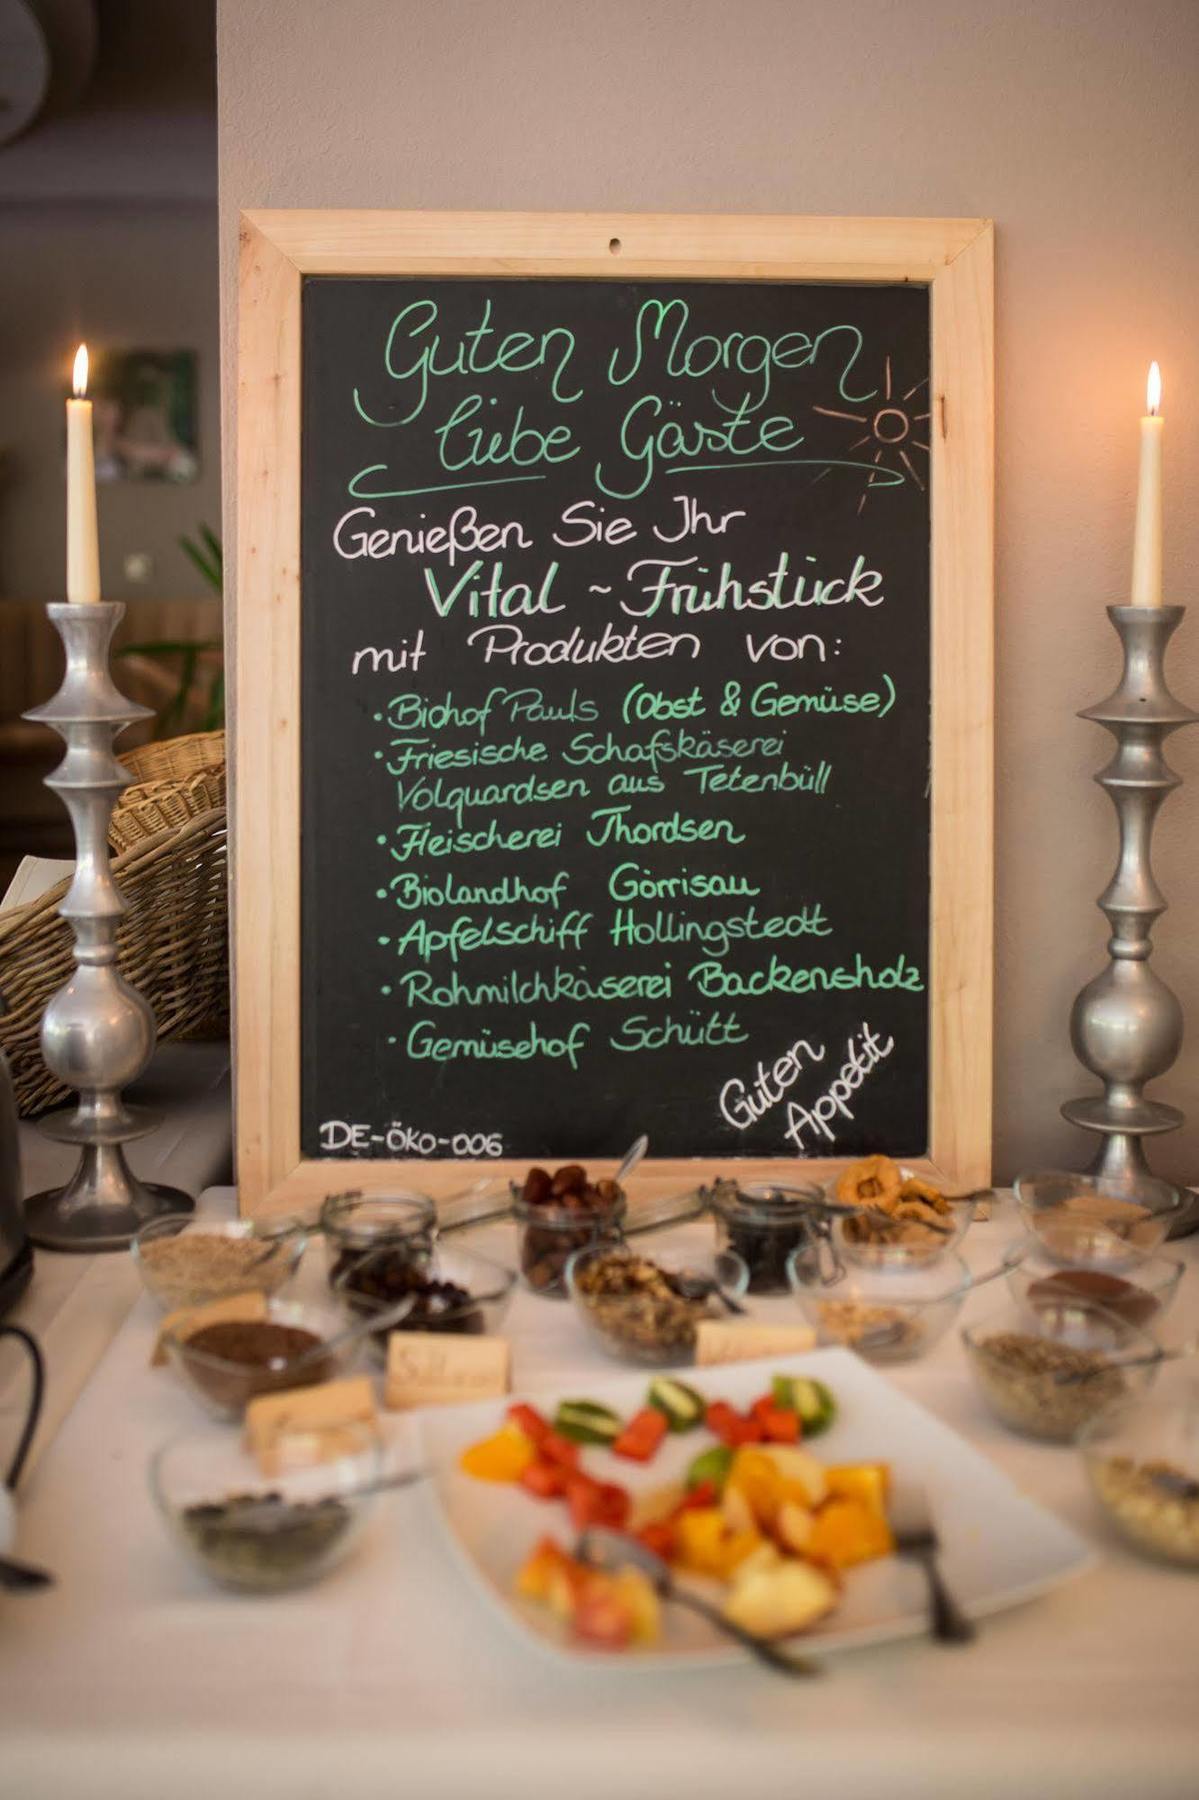 Guten Morgen
liebe Gäste
Genießen Sie Ihr
Vital ~ Frühstück
mit Produkten von:
• Biohof Pauls (Obst & Gemüse)
• Friesische Schafskäserei
Volquardsen aus Tetenbüll
• Fleischerei Thordsen
• Biolandhof Görrisau
• Apfelschiff Hollingstedt
• Rohmilchkäserei Backensholz
• Gemüsehof Schütt
Guten
Appetit
DE-ÖKO-006